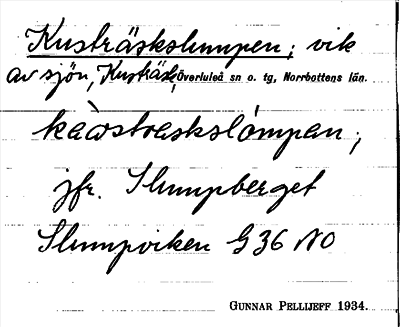 Kusträskslumpen; vik
av sjön, Kusträsk, Överluleå sn o. tg, Norrbottens län.
kàwstraskslómpan;
jfr. Slumpberget
Slumpviken G 36 NO
GUNNAR PELLIJEFF 1934.